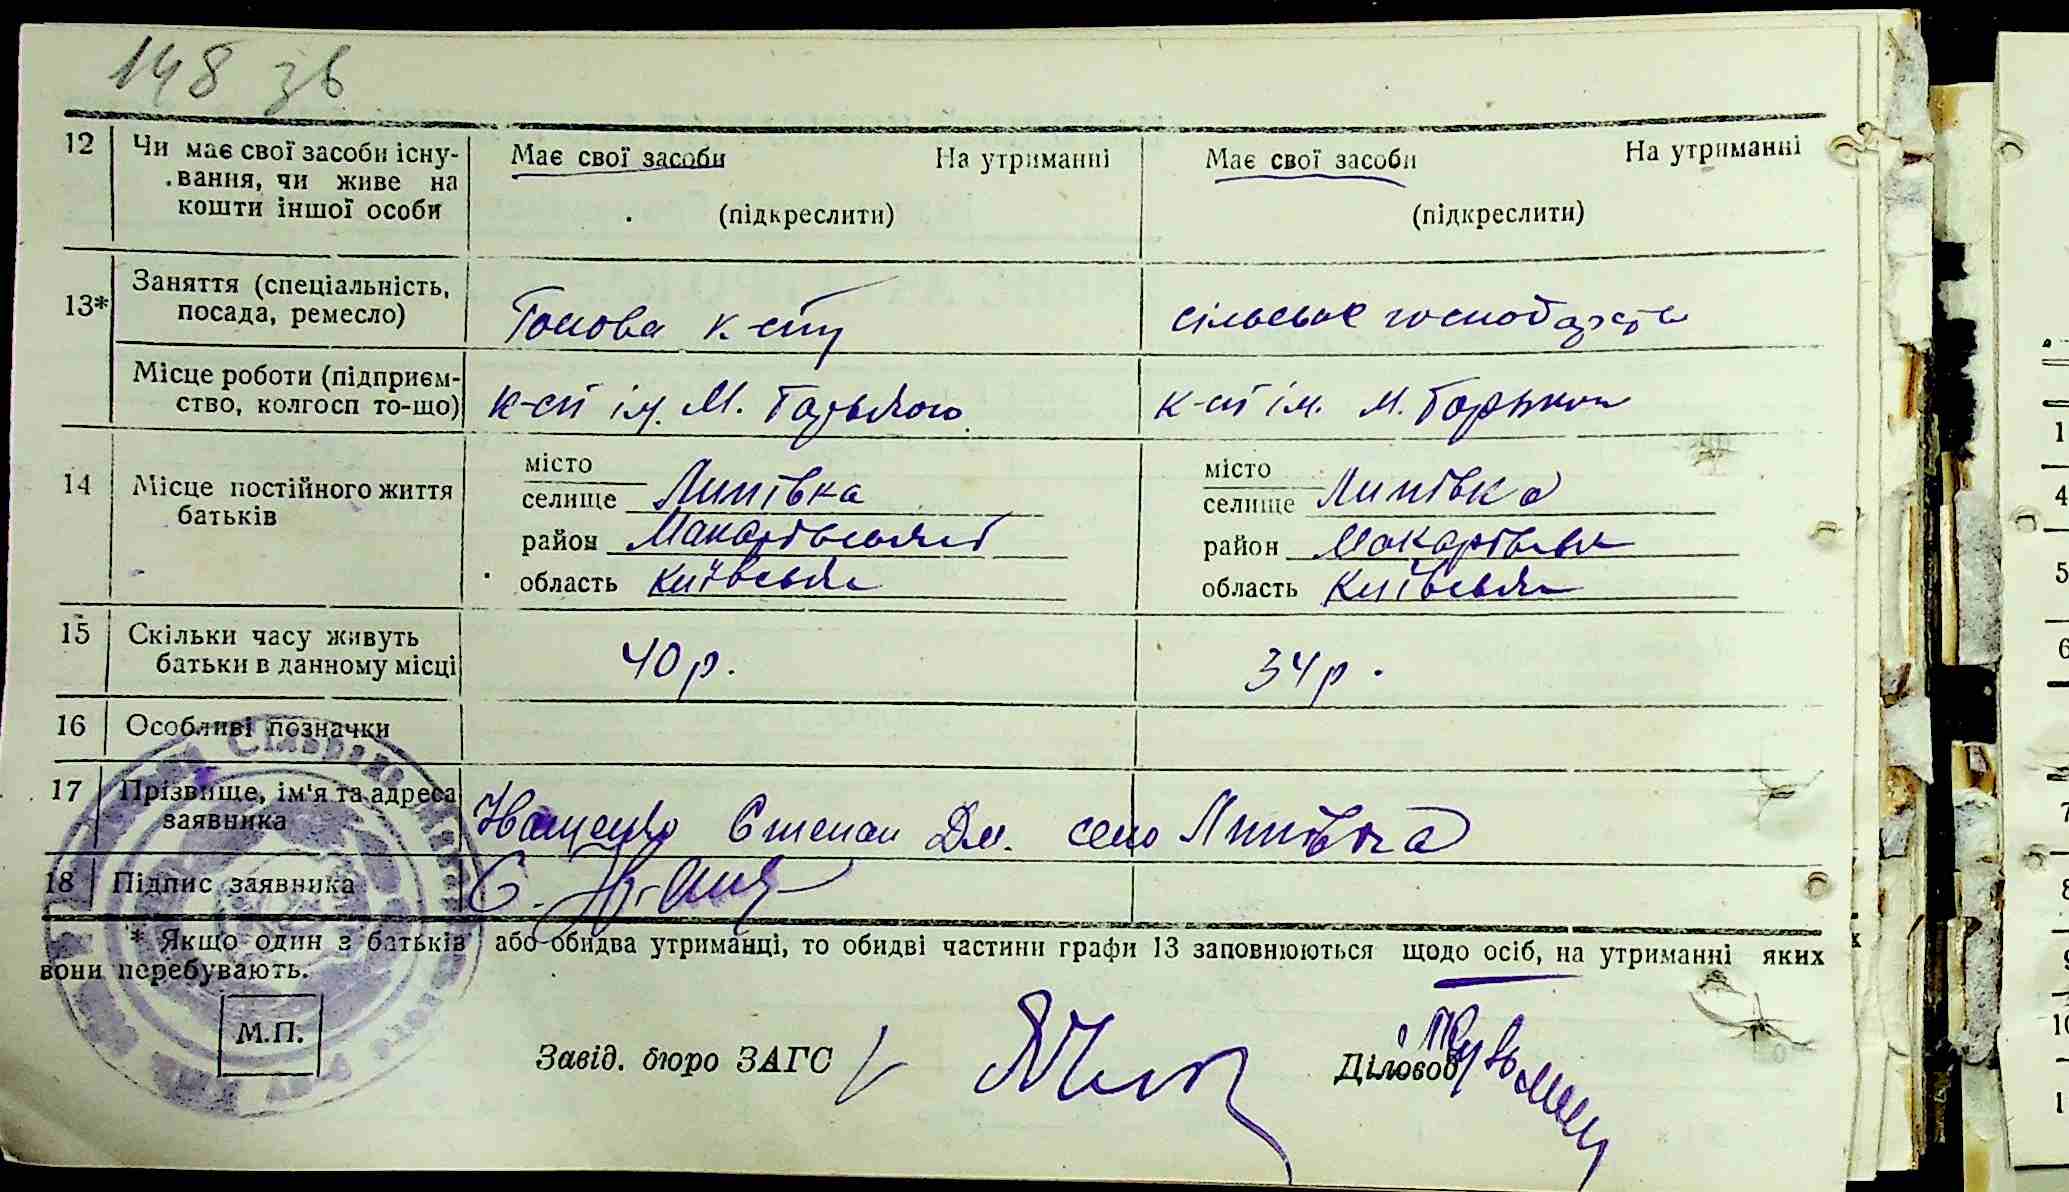 148 зв
12 Чи має свої засоби існу- Має свої засоби На утриманні Має свої засоби На утриманні
вання, чи живе на
кошти іншої особи (підкреслити) (підкреслити)
13* Заняття (спеціальність, посада, ремесло) Голова к-спу сільське господарство
Місце роботи (підприєм-
ство, колгосп то-що) к-сп ім. М. Горького к-сп ім. М. Горького
14 Місце постійного життя батьків
місто місто
селище Липівка селище Липівка
район Макарівський район Макарівськ
область Київська область Київська
15 Скільки часу живуть
батьки в данному місці 40 р. 34 р.
16 Особливі позначки
17 Прізвище, ім'я та адреса
заявника Іващенко Степан Дм. село Липівка
18 Підпис заявника С.
* Якщо один з батьків або обидва утриманці, то обидві частини графи 13 заповнюються щодо осіб, на утриманні яких
вони перебувають.
М.П.
Завід. бюро ЗАГС Діловод
1
4
5
6
7
8
9
10
1